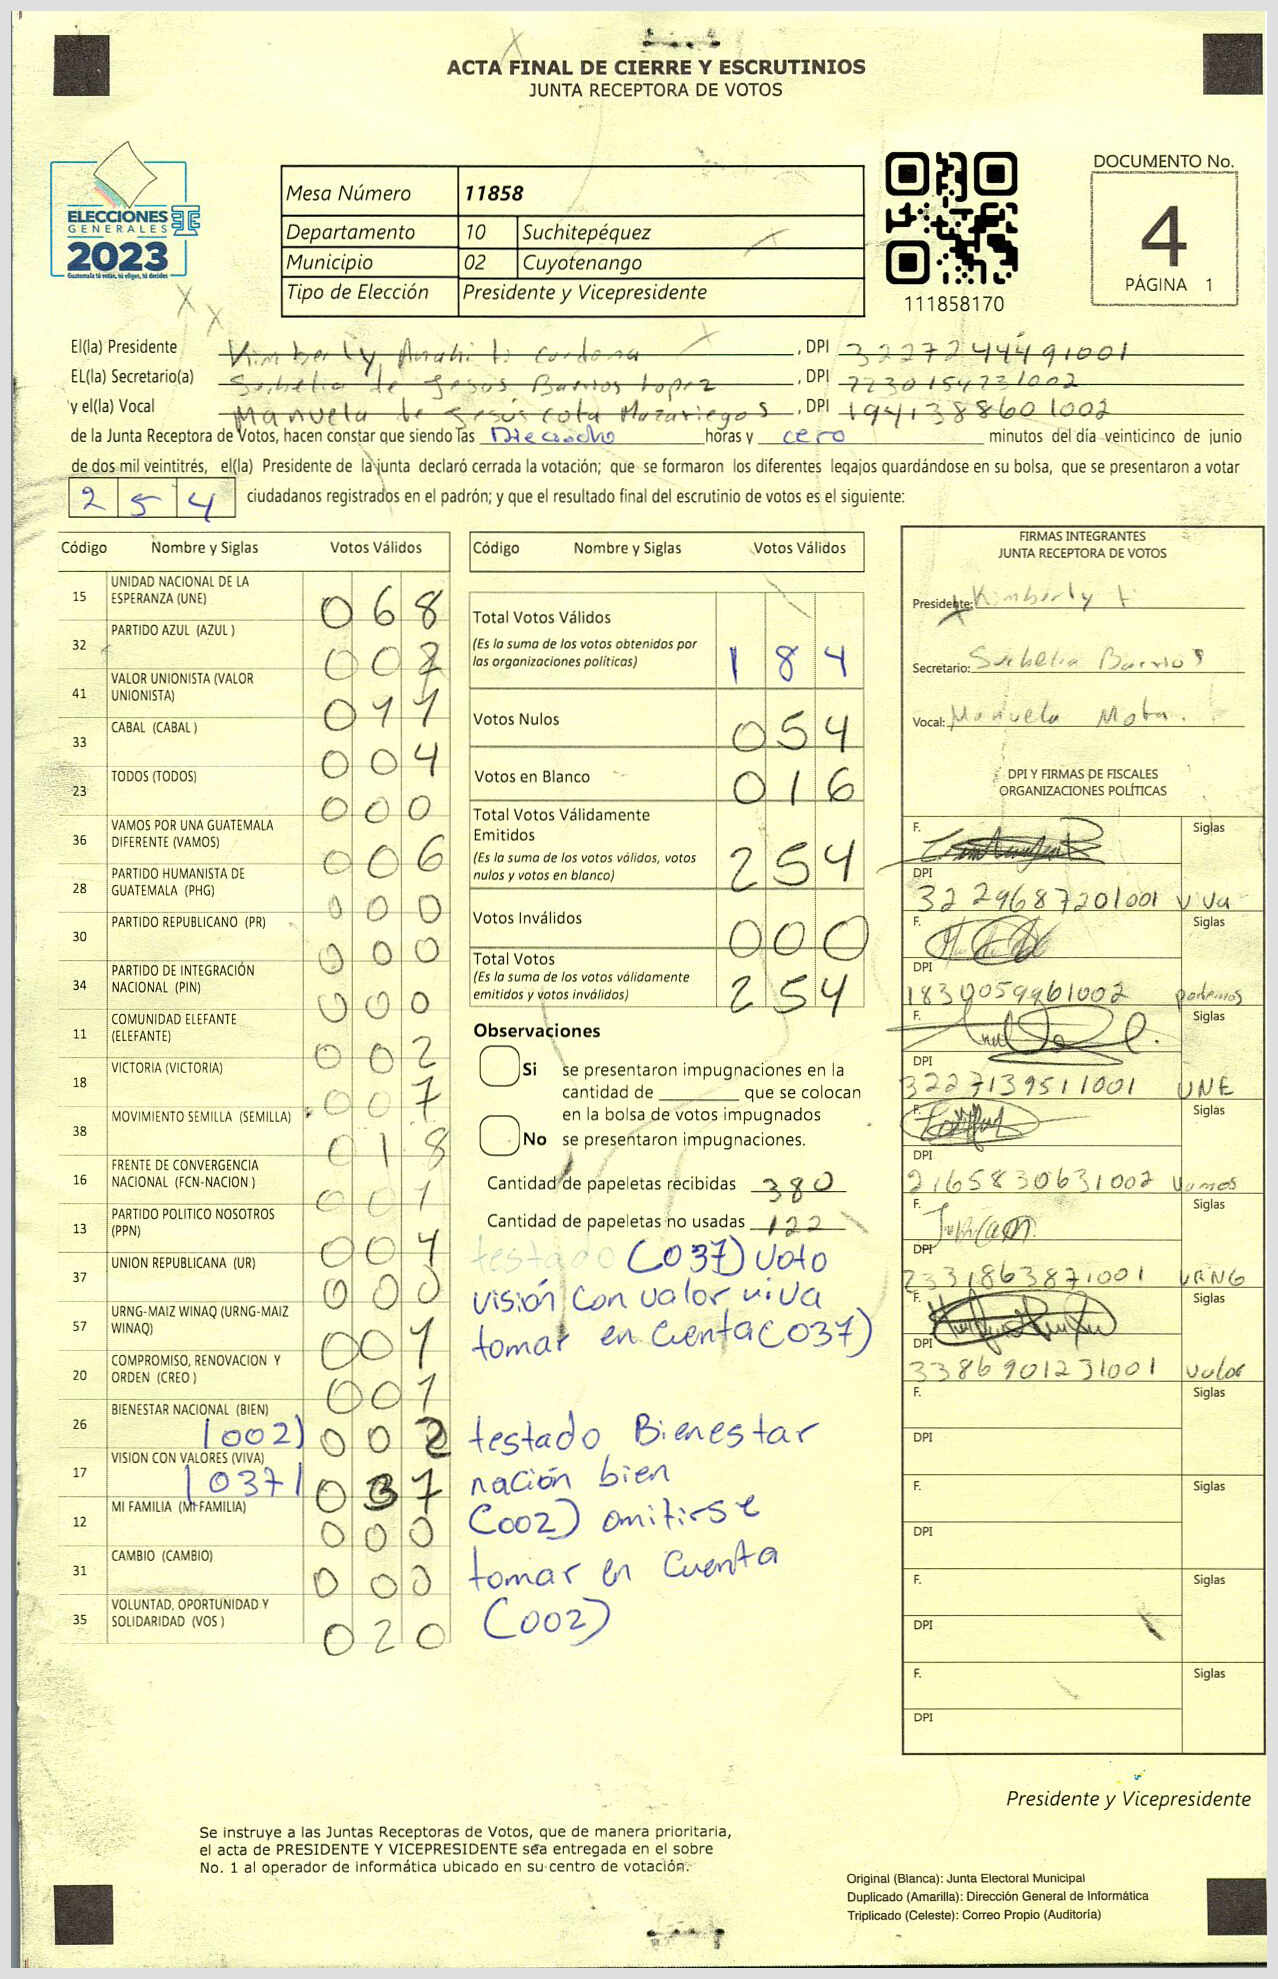 ACTA FINAL DE CIERRE Y ESCRUTINIOS
JUNTA RECEPTORA DE VOTOS
ELECCIONES
GENERALES
2023
Guatemala tú votas, tú eliges, tú decides
Mesa Número 11858
Departamento 10 Suchitepéquez
Municipio 02 Cuyotenango
Tipo de Elección Presidente y Vicepresidente
111858170
DOCUMENTO No.
4
PÁGINA 1
El(la) Presidente Kimberly Anahi Cardona, DPI 3227244491001
EL(la) Secretario(a) Surbelia de Jesus Barrios Lopez, DPI
y el(la) Vocal Manuela de Jesús Mazariegos, DPI 1941388601002
de la Junta Receptora de Votos, hacen constar que siendo las Dieciocho horas y cero minutos del día veinticinco de junio
de dos mil veintitrés, el(la) Presidente de la junta declaró cerrada la votación; que se formaron los diferentes legajos guardándose en su bolsa, que se presentaron a votar
254 ciudadanos registrados en el padrón; y que el resultado final del escrutinio de votos es el siguiente:
Código Nombre y Siglas Votos Válidos
15 UNIDAD NACIONAL DE LA ESPERANZA (UNE) 068
32 PARTIDO AZUL (AZUL ) 002
41 VALOR UNIONISTA (VALOR UNIONISTA) 011
33 CABAL (CABAL ) 004
23 TODOS (TODOS) 000
36 VAMOS POR UNA GUATEMALA DIFERENTE (VAMOS) 006
28 PARTIDO HUMANISTA DE GUATEMALA (PHG) 000
30 PARTIDO REPUBLICANO (PR) 000
34 PARTIDO DE INTEGRACIÓN NACIONAL (PIN) 000
11 COMUNIDAD ELEFANTE (ELEFANTE) 002
18 VICTORIA (VICTORIA) 007
38 MOVIMIENTO SEMILLA (SEMILLA) 018
16 FRENTE DE CONVERGENCIA NACIONAL (FCN-NACION ) 001
13 PARTIDO POLITICO NOSOTROS (PPN) 004
37 UNION REPUBLICANA (UR) 000
57 URNG-MAIZ WINAQ (URNG-MAIZ WINAQ) 001
20 COMPROMISO, RENOVACION Y ORDEN (CREO ) 001
26 BIENESTAR NACIONAL (BIEN) (002) 002
17 VISION CON VALORES (VIVA) (037) 037
12 MI FAMILIA (MI FAMILIA) 000
31 CAMBIO (CAMBIO) 000
35 VOLUNTAD, OPORTUNIDAD Y SOLIDARIDAD (VOS ) 020
Código Nombre y Siglas Votos Válidos
Total Votos Válidos
(Es la suma de los votos obtenidos por
las organizaciones políticas) 184
Votos Nulos 054
Votos en Blanco 016
Total Votos Válidamente
Emitidos
(Es la suma de los votos válidos, votos
nulos y votos en blanco) 254
Votos Inválidos 000
Total Votos
(Es la suma de los votos válidamente
emitidos y votos inválidos) 254
Observaciones
Si se presentaron impugnaciones en la
cantidad de ________ que se colocan
en la bolsa de votos impugnados
No se presentaron impugnaciones.
Cantidad de papeletas recibidas 380
Cantidad de papeletas no usadas 122
testado (037) voto
visión con valor viva
tomar en cuenta (037)
testado Bienestar
nación bien
(002) omitirse
tomar en cuenta
(002)
FIRMAS INTEGRANTES
JUNTA RECEPTORA DE VOTOS
Presidente: Kimberly
Secretario: Surbelia Barrios
Vocal: Manuela Mota.
DPI Y FIRMAS DE FISCALES
ORGANIZACIONES POLÍTICAS
F. Siglas
DPI
3229687201001 viva
F. Siglas
DPI
1830059961002 podemos
F. Siglas
DPI
3227139511001 UNE
F. Siglas
DPI
2165830631002 Vamos
F. Siglas
DPI
2331863871001 URNG
F. Siglas
DPI
3386901231001 valor
F. Siglas
DPI
F. Siglas
DPI
F. Siglas
DPI
F. Siglas
DPI
Presidente y Vicepresidente
Se instruye a las Juntas Receptoras de Votos, que de manera prioritaria,
el acta de PRESIDENTE Y VICEPRESIDENTE sea entregada en el sobre
No. 1 al operador de informática ubicado en su centro de votación.
Original (Blanca): Junta Electoral Municipal
Duplicado (Amarilla): Dirección General de Informática
Triplicado (Celeste): Correo Propio (Auditoría)